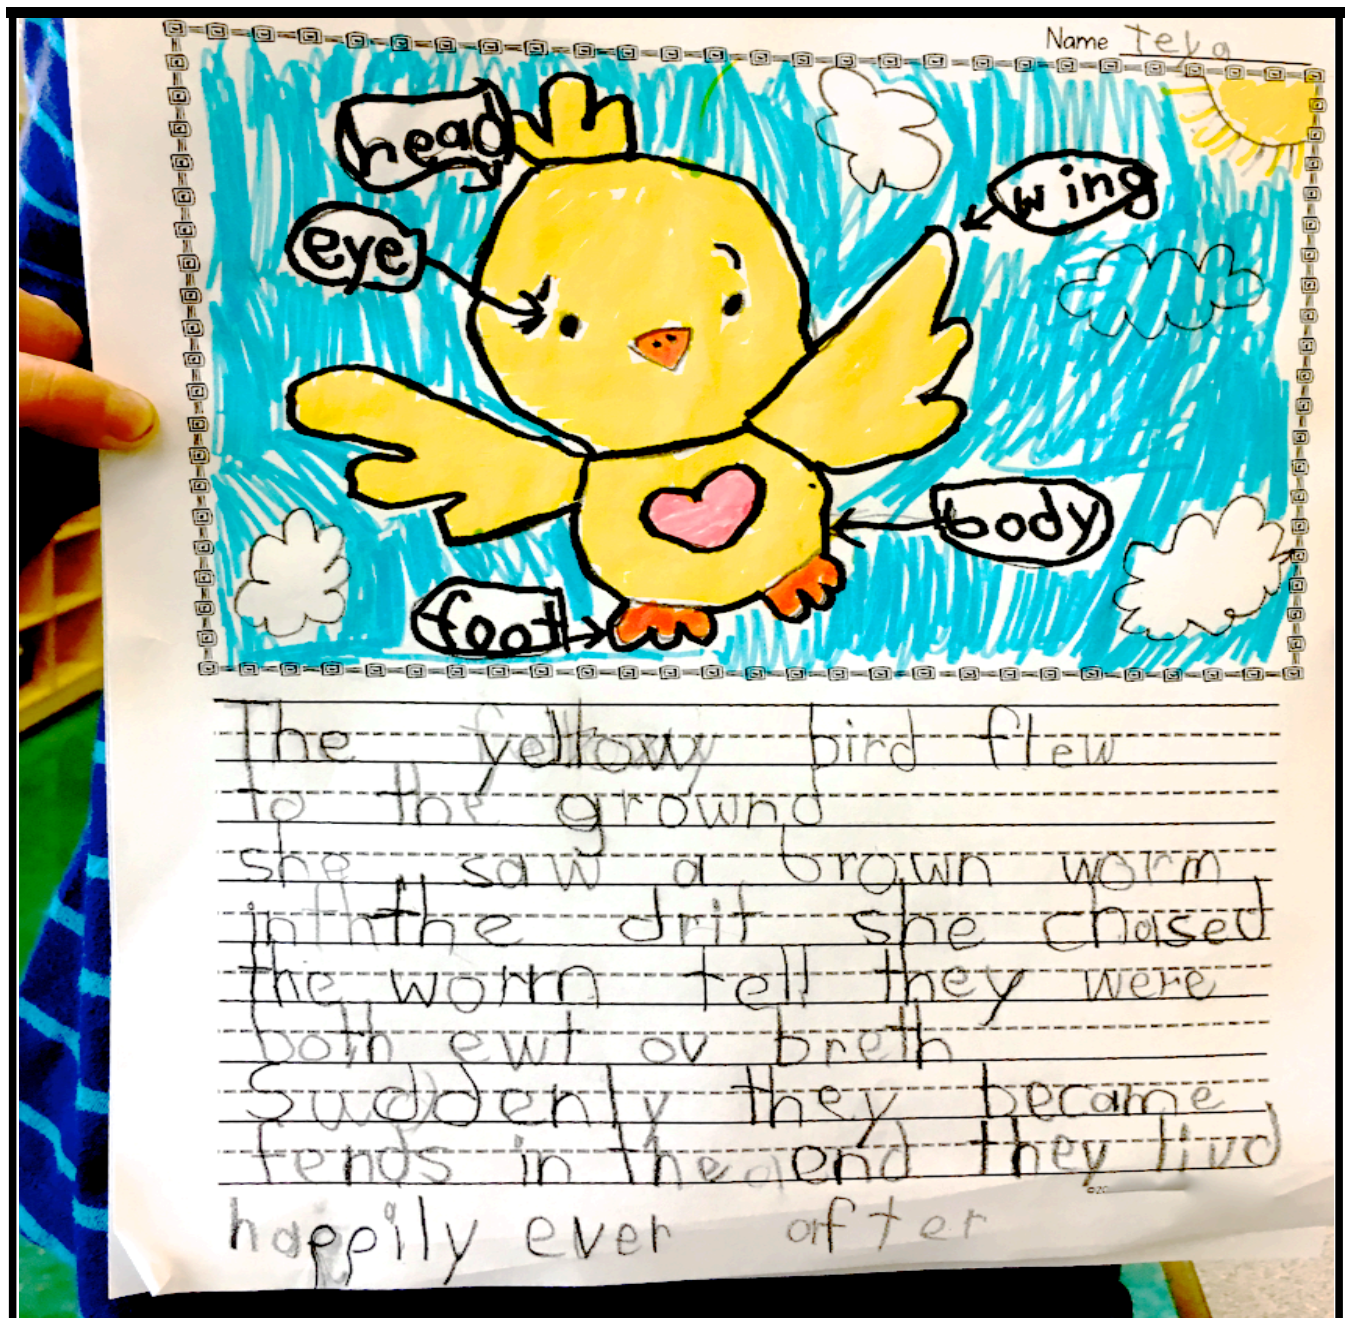 Name Teya
head
wing
eye
body
foot
The yellow bird flew
to the grownd
she saw a brown worm
in the drit she chased
the worm tell they were
both ewt ov breth
Suddenly they became
fends in the end they livd
happily ever after